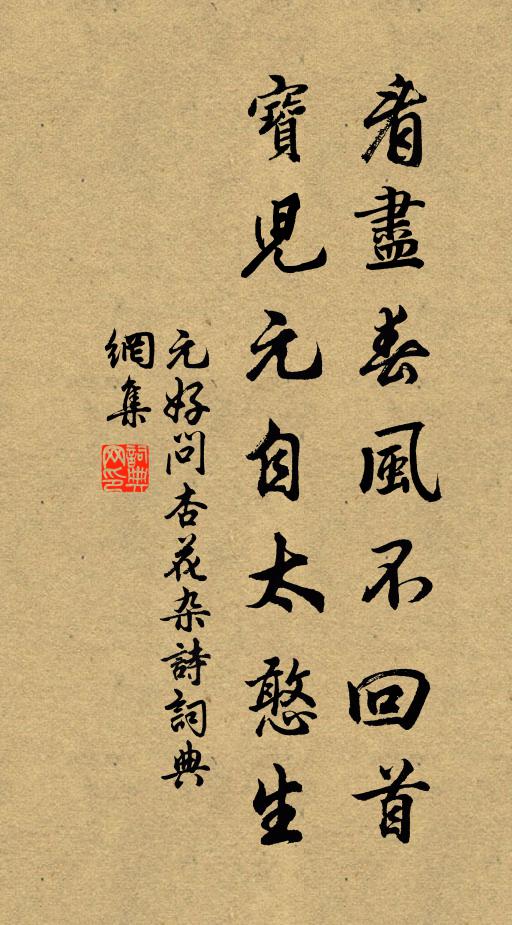 看盡春風不回首
寶兒元自太憨生
元好问杏花杂詩詞典
網集
詞典
网印